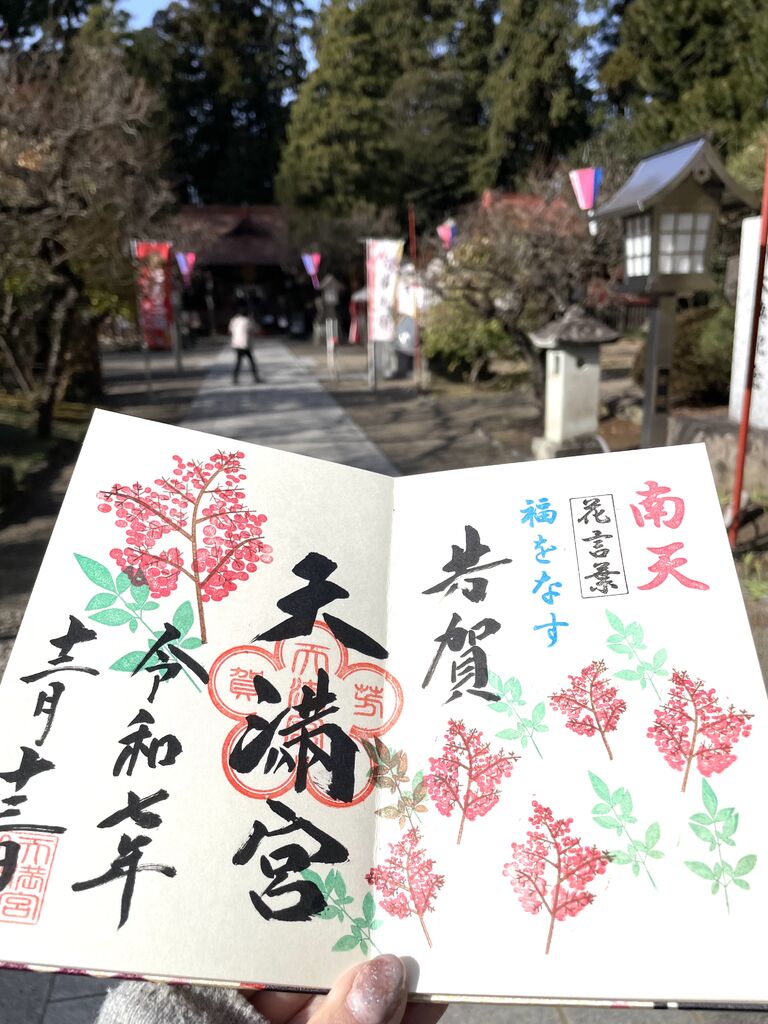 南天
花言葉
福をなす
芳賀
天満宮
令和七年
十二月十三日
芳
賀
天満宮